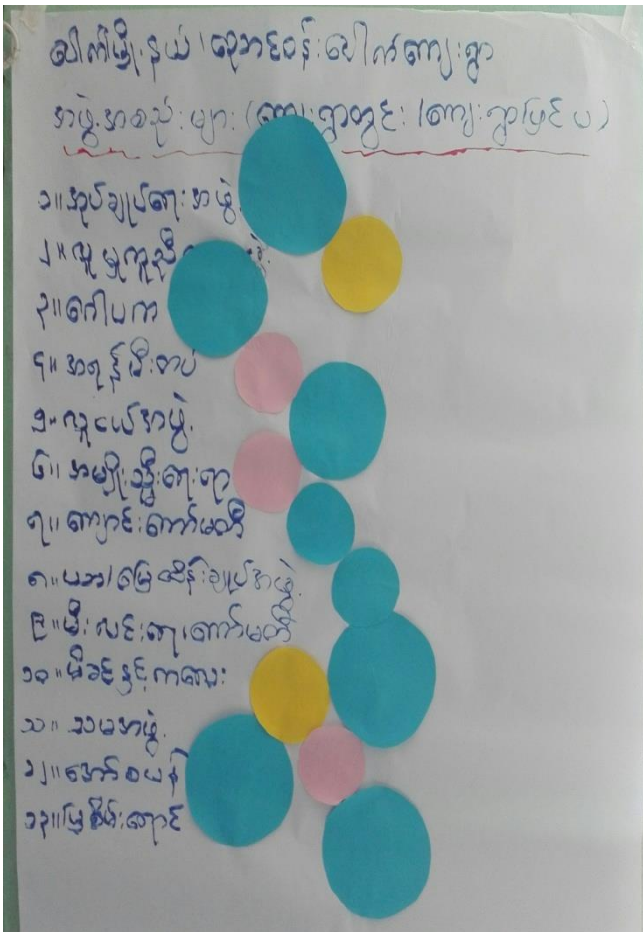 ပေါက်မြို့နယ်၊ ပေါက်ကျေးရွာ
အဖွဲ့အစည်းများ (ကျေးရွာတွင်း၊ ကျေးရွာပြင်ပ)
၁။ အုပ်ချုပ်ရေးအဖွဲ့
၂။ လူမှုကူညီ
၃။ ဂေါပက
၄။ အရန်မီးသတ်
၅။ လူငယ်အဖွဲ့
၆။ အမျိုးသ္မီးရေးရာ
၇။ ကျောင်းကော်မတီ
၈။ ပဘ/မြေထိန်းချုပ်အဖွဲ့
၉။ မီးလင်းရေးကော်မတီ
၁၀။ မိခင်နှင့်ကလေး
၁၁။ သမအဖွဲ့
၁၂။ အော်စယန်
၁၃။ မြစိမ်းရောင်